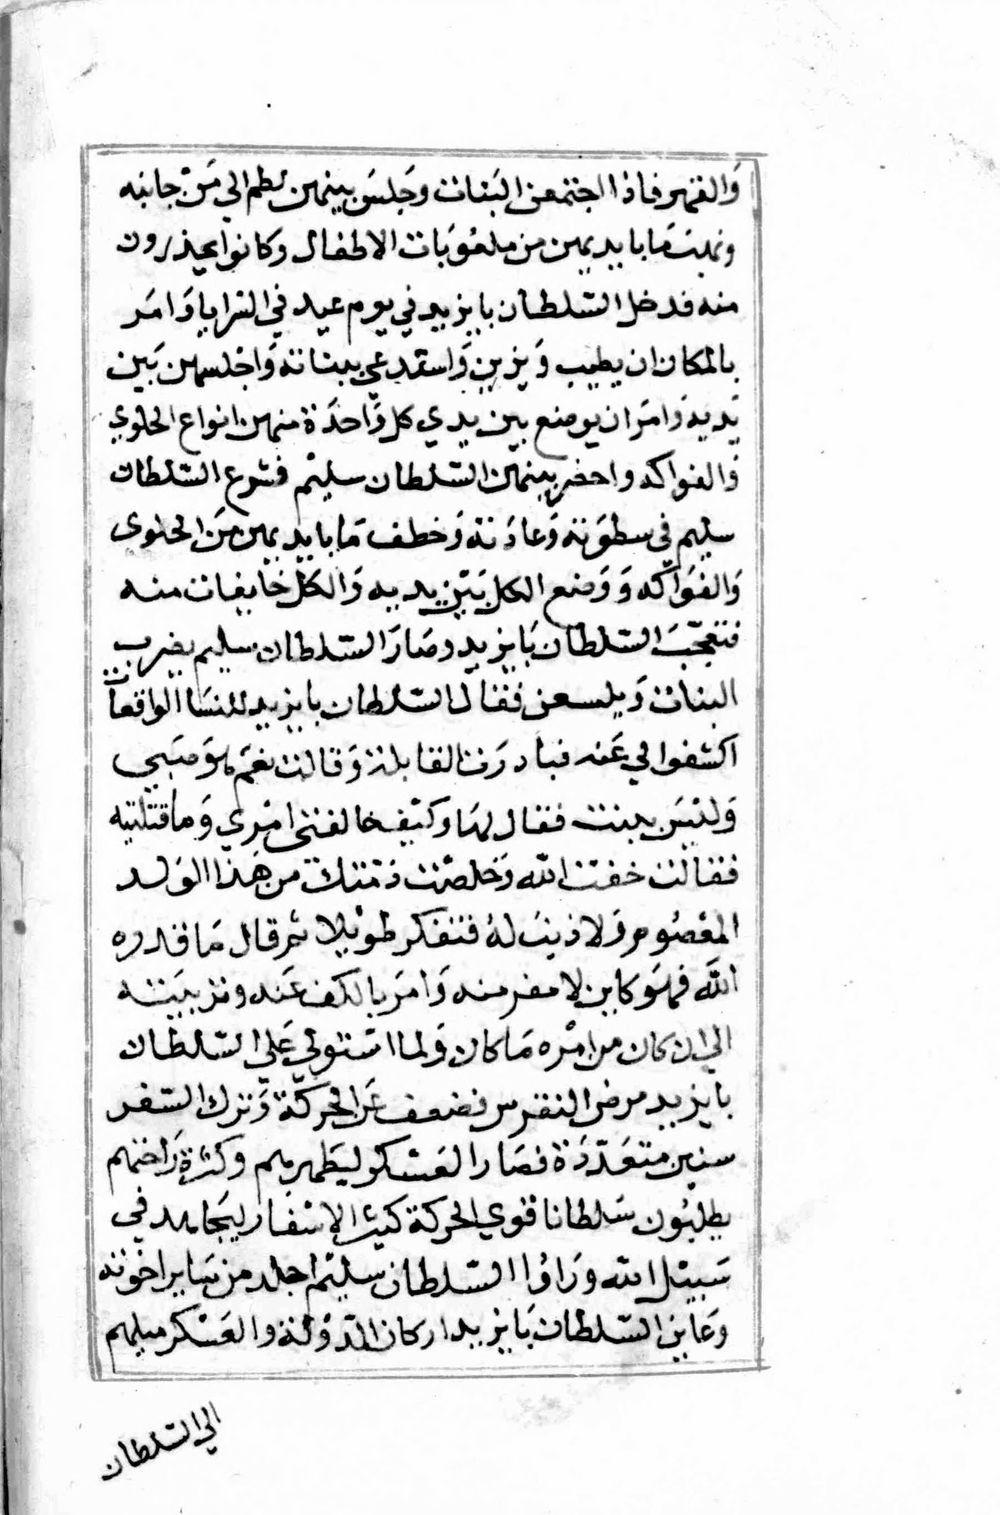 وَالقهر فاذا اجتمعن البَنات وجَلسَ بينهن لطم الي مَنْ جانبه
ونهبَ مَا بايديهن من ملعُوبَات الاطفال وكانوا يحذرون
منه فدخل السّلطان بايزيد في يوم عيد في السَرايا وَامَر
بالمكان ان يطيب وَيزين وَاستدعي ببناته وَاجْلسهن بَين
يَديه وَامَر ان يوضع بين يدي كل وَاحدَة منهن انواع الحلوي
وَالفواكه واحضر بينهن السّلطان سليْم فشرع السّلطان
سليم في سطوَته وَعادَته وَخطف مَا بايديهن منَ الحلوى
وَالفوَاكه وَوَضع الكل بَيْن يديه وَالكل خايفات منه
فتعجّبَ السّلطان بَايزيد وصَارَ السّلطان سليم يضرب
البنات وَيلسعن فقال السّلطان بايزيد للنسَا الواقعات
اكشفوا لي عَنه فبادرَت القابلة وَقالت نعَم هوَ صَبي
وَليْسَ ببنت فقال لهَا وَكيْف خالفتي امْري وَمَا قتلتيه
فقالت خفت الله وَخلصْت ذمتك من هَذا الوَلد
المعْصُوم وَلا ذنبَ لهُ فتفكر طوْيلا ثم قال مَا قدره
اللّه فهوَ كاين لا مفر منه وَامَر بالكف عَنه وتربيَته
الي ان كان من امْره مَا كان وَلما اسْتولي عَلي السّلطان
بايزيد مرض النقرس فضعف عَن الحركة وَترك السّفر
سنين متعَدّدَة فصَار العَسْكر ليَطهرهم وكثرة رَاحتهم
يطلبُون سَلطانا قوي الحركة كثير الاسْفار ليجَاهد في
سَبيْل الله ورَاوُا السّلطان سليْم اجلد من سَاير اخوته
وَعاين السّلطان بَايزيد اركان الدّوْلة والعَسْكر ميلهم
الي السّلطان